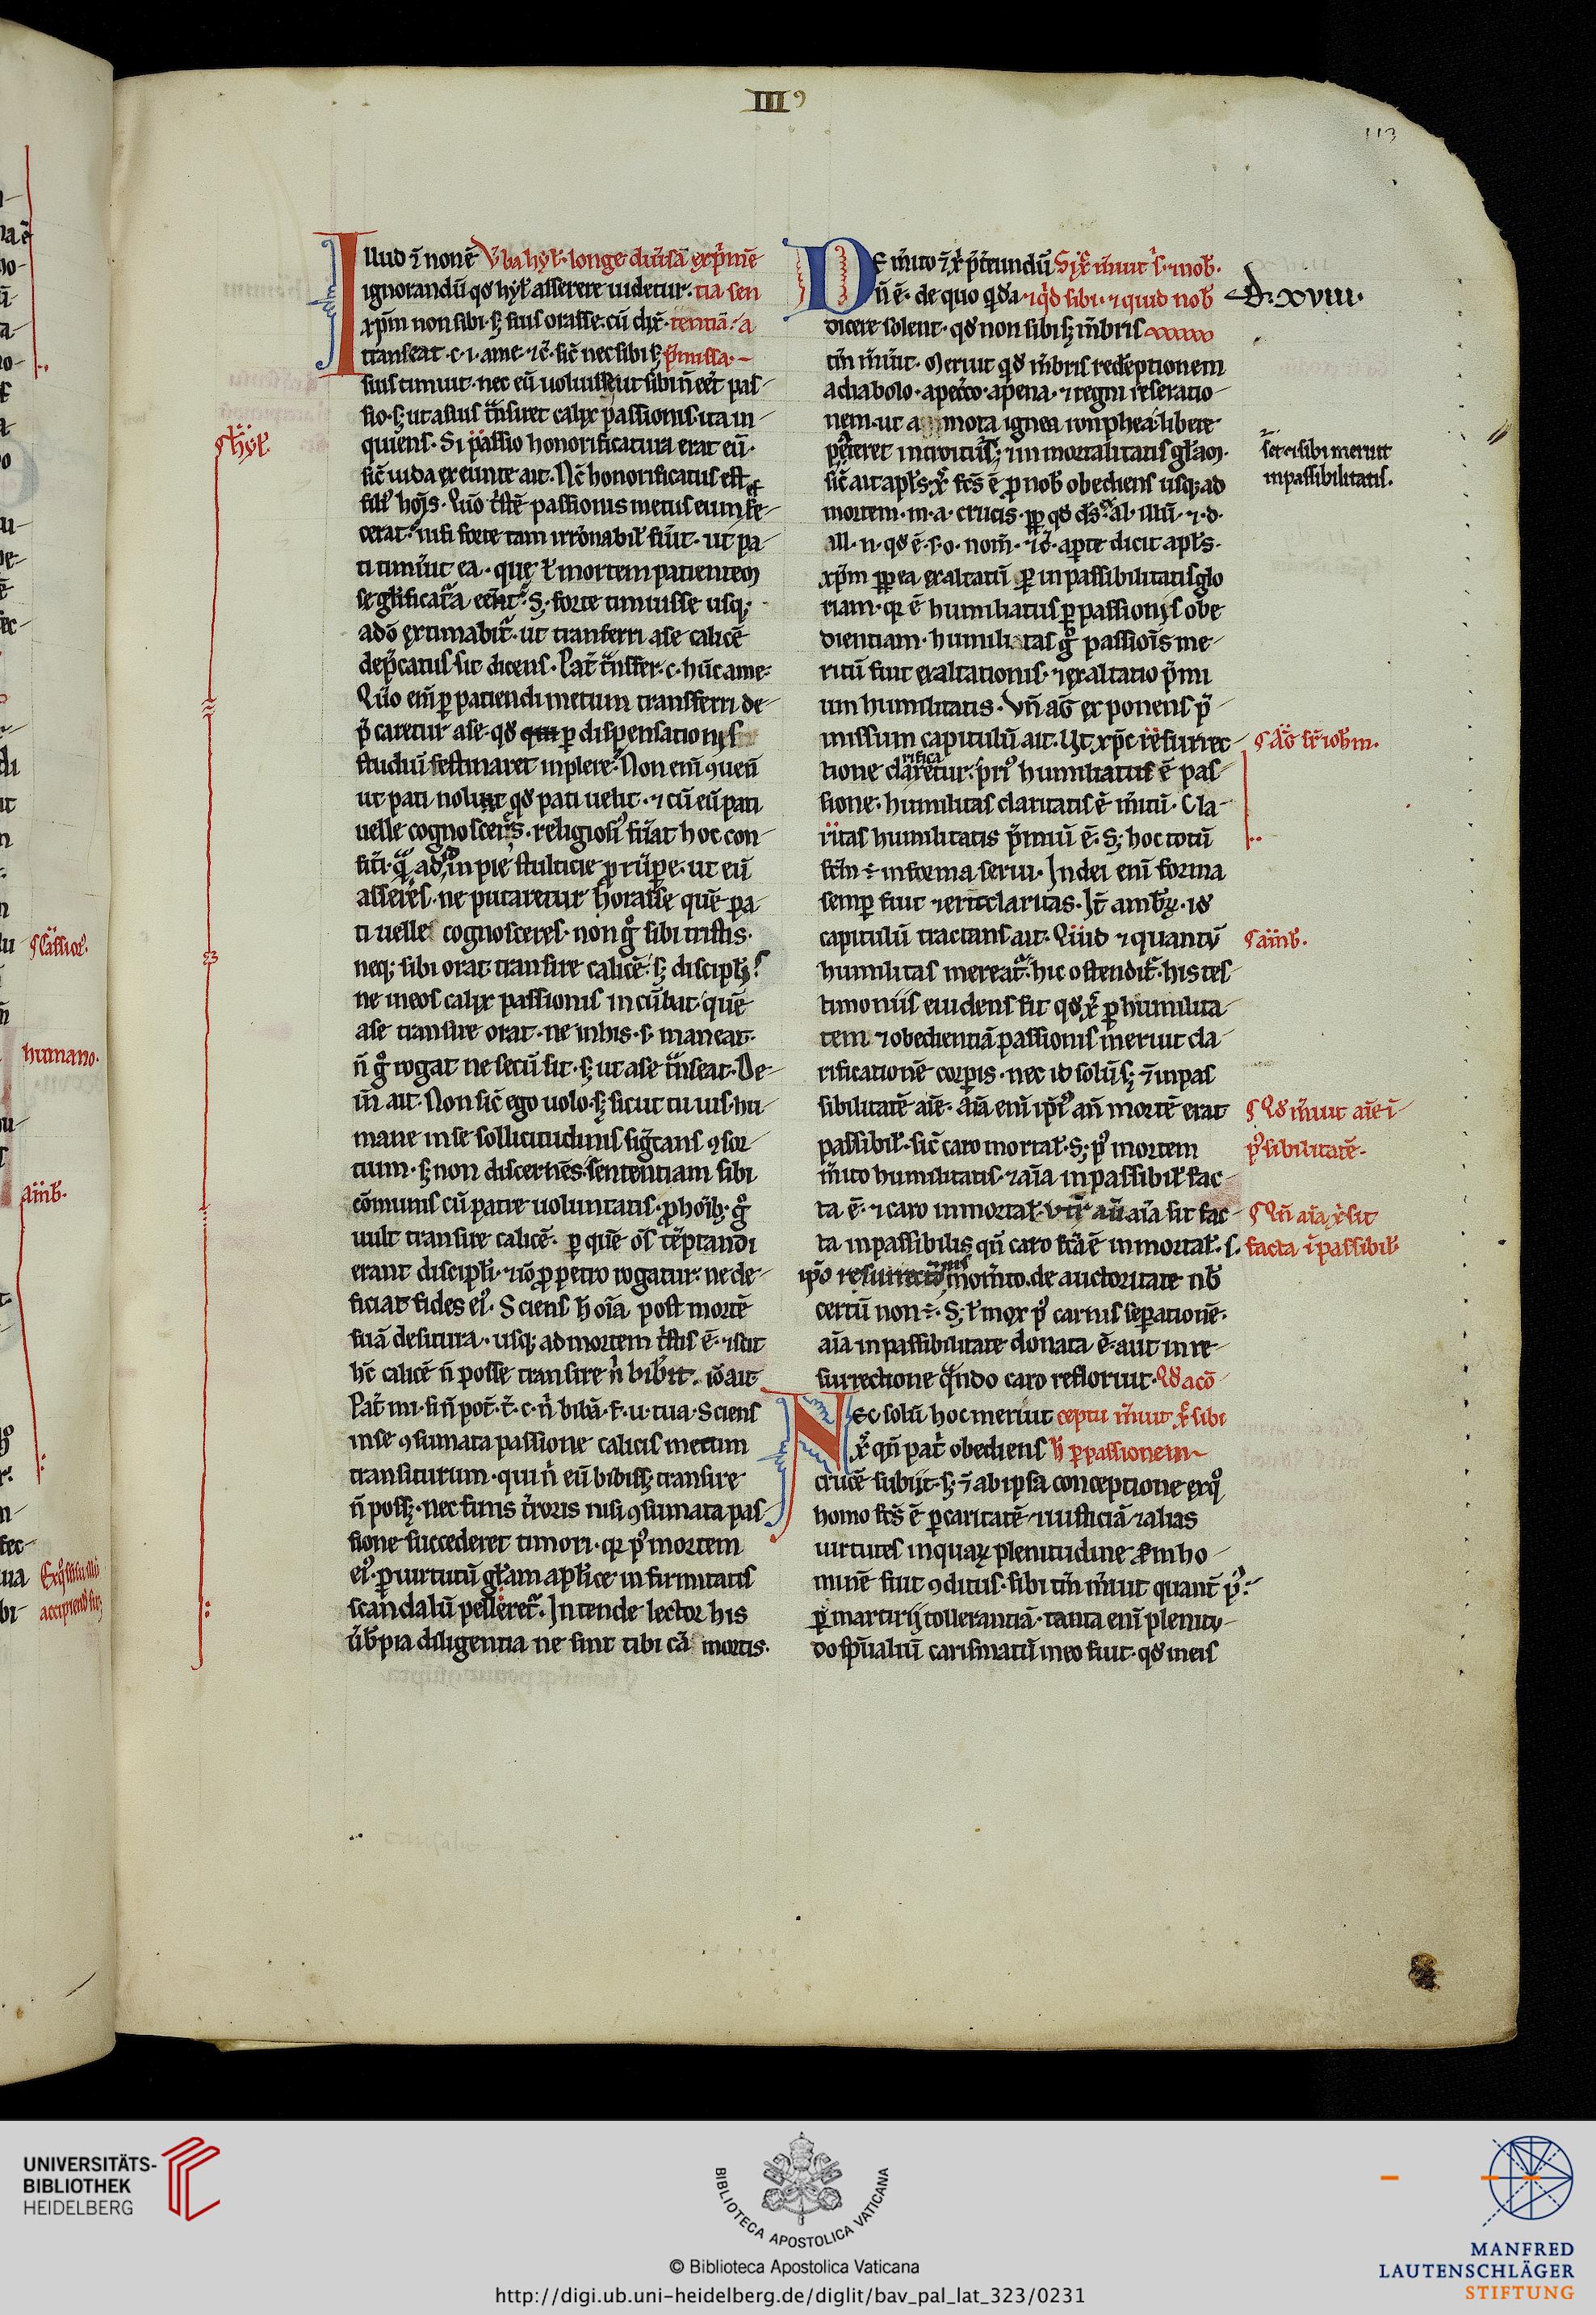 III⁹
113
Illud ī non ē V̄ba hyl̄· longe diūsā exp̄mē
ignorandū qd̄ hyl̄ asserere uidetur· tia sen
xp̄m non sibi· sꝫ suis orasse· cū dix̄· tentiā· a
transeat· c· i· a me· ⁊c̄· sic̄ nec sibi sꝫ p̄missa·
suis timuit· nec eū uoluisse ut sibi n̄ eēt pas-
sio· sꝫ ut a suis t̄nsiret calix passionis· ita in-
quiens· Si passio honorificatura erat eū·
sic̄ iuda exeunte ait· Nc̄ honorificatus est
filiꝰ hoīs· Quō t̄stē passionis metus eum effe-
cerat· nisi forte tam irrōnabil̄ fuīt· ut pa-
ti timūit ea· que ł mortem patientem
se gl̄ificat̄a eēnt· Sꝫ forte timuisse usqꝫ
adō extimabit̄· ut tranferri a se calicē
dep̄catus sit dicens· Pat̄ t̄nsfer· c· hūc a me·
Quō em̄ ꝑ patiendi metum transferri de-
p̄caretur a se· qd̄ ꝑ dispensationis
studiū festinaret inplere· Non em̄ ꝯuen̄
ut pati nolit qd̄ pati uelit· ⁊ cū eū pati
uelle cognosceres· religiosi⁹ fūat hoc con-
fiti· q̄ ad īn pie stulticie prūpe· ut eū
asseres· ne putaretur horasse quē pa-
ti uelle cognosceres· non gͦ sibi tristis·
neqꝫ sibi orat transire calicē· sꝫ discipl̄is
ne in eos calix passionis incūbat· quē
a se transire orat· ne in his· s· maneat·
n̄ gͦ rogat ne secū sit· sꝫ ut a se t̄nseat· De-
m̄ ait· Non sic̄ ego uolo· sꝫ sicut tu uis· hu-
mane in se sollicitudinis sig̅tcans ꝯsor-
tium· sꝫ non discernēs sententiam sibi
cōmunis cū patre uoluntatis· p̄ hoībꝫ gͦ
uult transire calicē· ꝑ quē oīs tēptandi
erant discipl̄i· iō ꝓ petro rogatur· ne de-
ficiat fides eiꝰ· Sciens h̄ oīa post mortē
suā desitura· usqꝫ ad mortem t̄stis ē· ⁊ scit
hc̄ calicē n̄ posse transire n̄ bib̄it· iō ait
Pat̄ mi· si n̄ pot̄· t̄· c· n̄ bibā· f· u· tua· Sciens
in se ꝯsumata passione calicis metum
transiturum· qui n̄ eū bibissꝫ transire
n̄ possꝫ· nec finis t̄roris nisi ꝯsumata pas-
sione succederet timori· qꝛ pꝰ mortem
eiꝰ· ꝑ uirtutū gl̄am apl̄ice infirmitatis
scandalū pelleret̄· Intende lector his
ūb̄ pia diligentia ne sint tibi cā mortis·
§ hyl̄·
De m̄ito ⁊ x̄ p̄tmtundū Si x̄ m̄uit s̄· ⁊ nob̄·
n̄ ē· de quo qd̄a ⁊ qd̄ sibi· ⁊ quid nob̄
D· XVIII·
dicere solent· qd̄ non sibi sꝫ m̄bris
tm̄ m̄uit· Meruit qd̄ m̄bris redēptionem
a diabolo· a pecco· a pena· ⁊ regni reseratio-
nem· ut amota ignea romphea libere
pateret introitus· ⁊ inmortalitatis gl̄am·
set ⁊ sibi meruit
inpassibilitatis·
sic̄ ait apl̄s· x̄ fc̄s ē ꝓ nob̄ obediens usqꝫ ad
mortem· m· a· crucis· ꝓp qd̄ ds̄· ⁊ al· illū· ⁊· d·
ill· n· qd̄ ē· s· o· nom̄· ⁊c̄· aꝑte dicit apl̄s·
xp̄m ꝓp ea exaltatū ꝑ inpassibilitatis glo
riam· qꝛ ē humiliatus ꝑ passionis obe
dientiam· humilitas gͦ passiōis me-
ritū fuit exaltationis· ⁊ exaltatio p̄mi
um humilitatis· Vn̄ aḡ exponens p̄
missum capitulū ait· Ut xp̄c resurrec-
§ aḡ sr̄ ioh̄m·
tione clarificaretur· priꝰ humiliatus ē pas-
sione· humilitas claritatis ē m̄itū· Cla-
ritas humilitatis p̄miū ē· Sꝫ hoc totū
fcm̄ ÷ in forma serui· In dei enī forma
semꝑ fuit ⁊ erit claritas· It̄ amb̄ꝝ· id̄
capitulū tractans ait· Quid ⁊ quantū
§ amb̄·
humilitas mereat̄· hic ostendit̄· his tes-
timoniis euidens fit qd̄ x̄ ꝑ humilita-
tem ⁊ obedientiā passionis meruit cla-
rificationē corꝑis· nec id solū sꝫ ⁊ inpas
sibilitatē aīe· aīa enī ip̄iꝰ an̄ mortē erat
§ Qd̄ m̄uit aīe ī-
passibil̄· sic̄ caro mortal̄· Sꝫ pꝰ mortem
pꝰsibilitatē-
m̄ito humilitatis· ⁊ aīa inpassibil̄ fac-
ta ē· ⁊ caro inmortal̄· Vtr̄ aū aīa sit fac-
§ Qn̄ aīa x̄ sit
ta inpassibilis qn̄ caro fcā ē inmortal̄· s·
facta īpassibil̄·
ipō resurrectōnis mom̄to· de auctoritate nb̄
certū non ÷· Sꝫ ł mox pꝰ carnis seꝑationē·
aīa inpassibilitate donata ē· aut in re-
surrectione q̄ndo caro refloruit· Qd̄ a cō-
Nec solū hoc meruit ceptu m̄uit x̄ sibi
x̄ qn̄ pat̄ obediens h̄ ꝑ passionem-
crucē subiit· sꝫ ⁊ ab ipsa conceptione ex qͦ
homo fc̄s ē ꝑ caritatē ⁊ iusticiā ⁊ alias
uirtutes in quaꝝ plenitudine s̄m ho-
minē fuit ꝯditus· sibi tm̄ m̄uit quant̄ pꝰ·
ꝑ martirij tollerantiā· tanta enī plenitu-
do sp̄ualiū carismatū in eo fuit· qd̄ in eis
§ Cassior̄·
humano·
amb̄·
UNIVERSITÄTS-
BIBLIOTHEK
HEIDELBERG
BIBLIOTECA APOSTOLICA VATICANA
© Biblioteca Apostolica Vaticana
http://digi.ub.uni-heidelberg.de/diglit/bav_pal_lat_323/0231
MANFRED
LAUTENSCHLÄGER
STIFTUNG